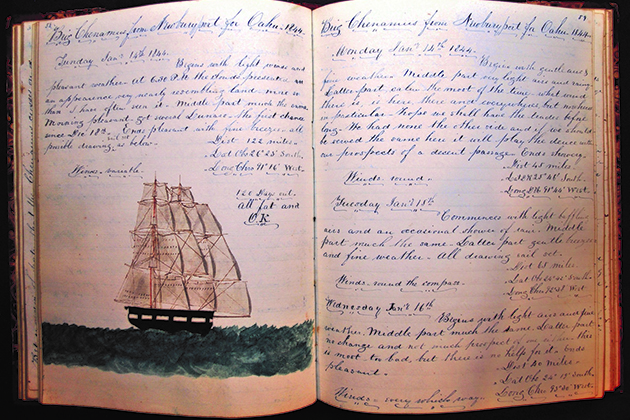 Brig Chenamus from Newburyport for Oahu 1844.
Sunday Jan. 14th 1844.
Begins with light airs and
pleasant weather. At 6.30 P.M. the clouds presented
an appearance very nearly resembling land - more so
than I have often seen it. Middle part much the same.
Morning pleasant. Got several Lunars. The first chance
since Dec 18th. Ends pleasant with fine breezes. all
possible drawing as below.
Dist 122 miles.
Lat Obs 26° 25' South.
Winds variable.
Long Chr 91° 16' West.
122 Days out.
All fat and
OK
59
Brig Chenamus from Newburyport for Oahu 1844.
Monday Jan. 14th 1844.
Begins with gentle airs &
fine weather. Middle part very light airs and rainy.
Latter part calm the most of the time, what wind
there is, is here there and everywhere, but nowhere
in particular. Hope we shall have the trades before
long. We had none the other side and if we should
be served the same here it will play the deuce with
our prospects of a decent passage. Ends showery.
Dist 48 miles.
Winds round.
South.
Long West.
Tuesday Jan. 15th
Commences with light baffling
airs and an occasional shower of rain. Middle
part much the same. Latter part gentle breezes
and fine weather. All drawing sail set.
Dist 68 miles.
Winds round the compass.
Lat Obs South.
Long Chr West.
Wednesday Jan. 16th
Begins with light airs and fine
weather. Middle part much the same. Latter part
no change and not much prospect of any. this
is most too bad, but there is no help for it. Ends
pleasant.
Dist 40 miles.
Lat Obs South.
Winds every which way.
Long Chr West.